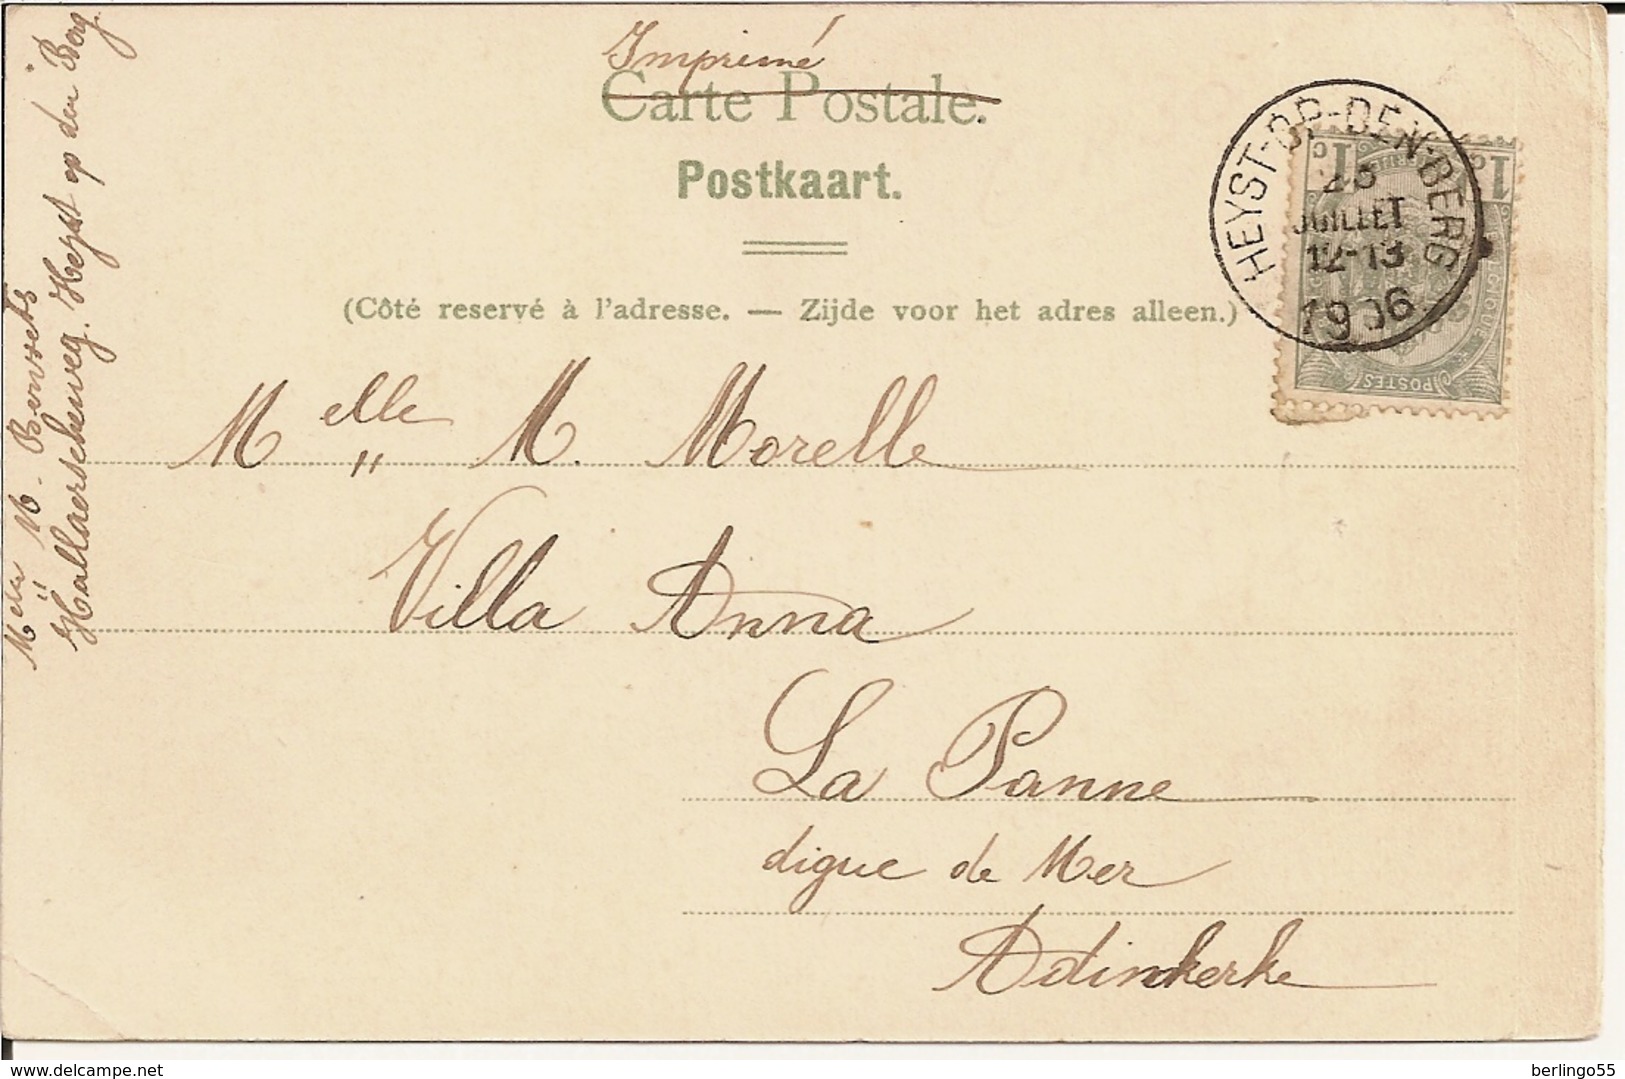 Imprimé
Carte Postale.
Postkaart.
(Côté reservé à l'adresse. — Zijde voor het adres alleen.)
HEYST-OP-DEN-BERG
JUILLET
12-13
1906
1c 1c
POSTES
Melle M. Morelle
Villa Anna
La Panne
digue de Mer
Adinkerke
Melle M.
Hallaerscheweg. Heyst op den Berg
delcampe.net
berlingo55